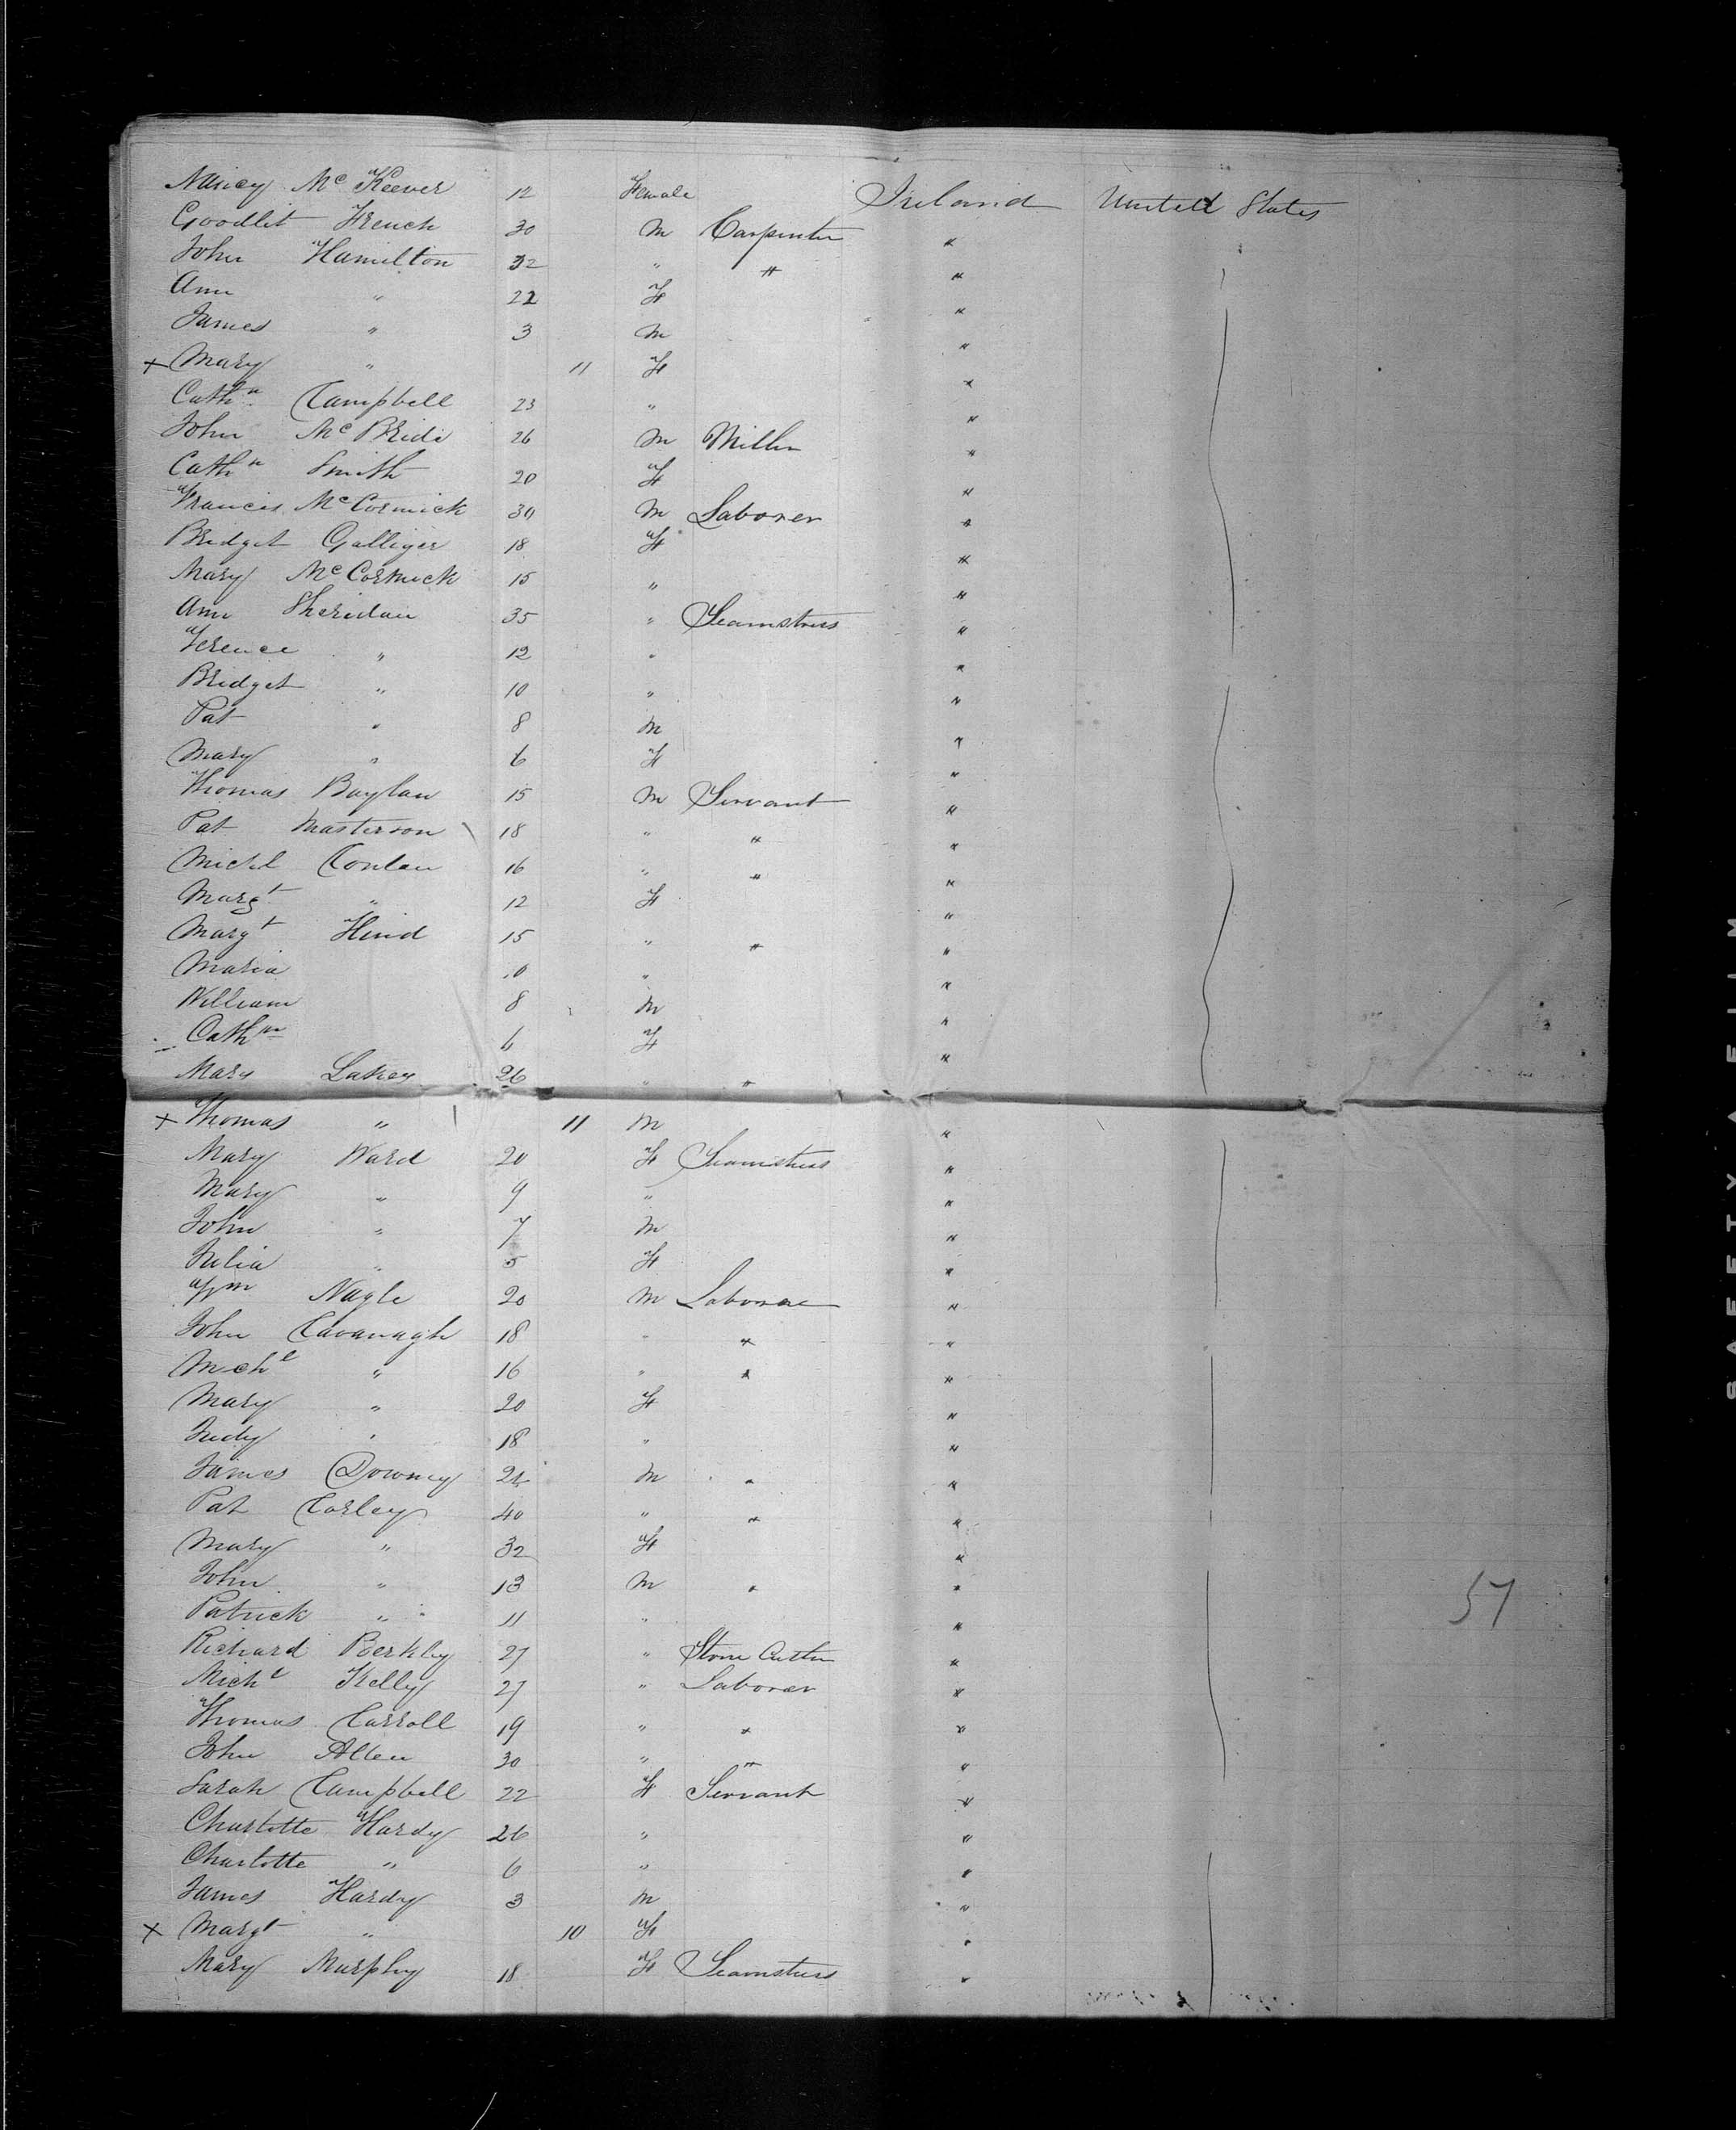 Nancy Mc Keever 12 Female Ireland United States
Goodlit French 30 M Carpenter "
John Hamilton 32 " " "
Ann " 22 F "
James " 3 M "
+ Mary " 11 F "
Cathn Campbell 23 " "
John Mc Bride 26 M Miller "
Cathn Smith 20 F "
Francis Mc Cormick 30 M Laborer "
Bridget Galliger 18 F "
Mary Mc Cormick 15 " "
Ann Sheridan 35 " Seamstress "
Terence " 12 " "
Bridget " 10 " "
Pat " 8 M "
Mary " 6 F "
Thomas Boylan 15 M Servant "
Pat Masterson 18 " " "
Michl Conlan 16 " " "
Margt " 12 F "
Margt Hind 15 " " "
Maria 10 " "
William 8 M "
Cathn 6 F "
Mary Lakey 26 " " 
+ Thomas " 11 M "
Mary Ward 20 F Seamstress "
Mary " 9 " "
John " 7 M "
Julia " 5 F "
Wm Nagle 20 M Laborer "
John Cavanagh 18 " " "
Mchl " 16 " " "
Mary " 20 F "
Judy " 18 " "
James Downey 24 M " "
Pat Corley 40 " " "
Mary " 32 F "
John " 13 M " "
Patrick " 11 " "
57
Richard Berkley 27 " Stone Cutter "
Michl Kelly 27 " Laborer "
Thomas Carroll 19 " " "
John Allen 30 " " "
Sarah Campbell 22 F Servant "
Charlotte Hardy 26 " "
Charlotte " 6 " "
James Hardy 3 M "
+ Margt " 10 F "
Mary Murphy 18 F Seamstress "
SAFETY FILM